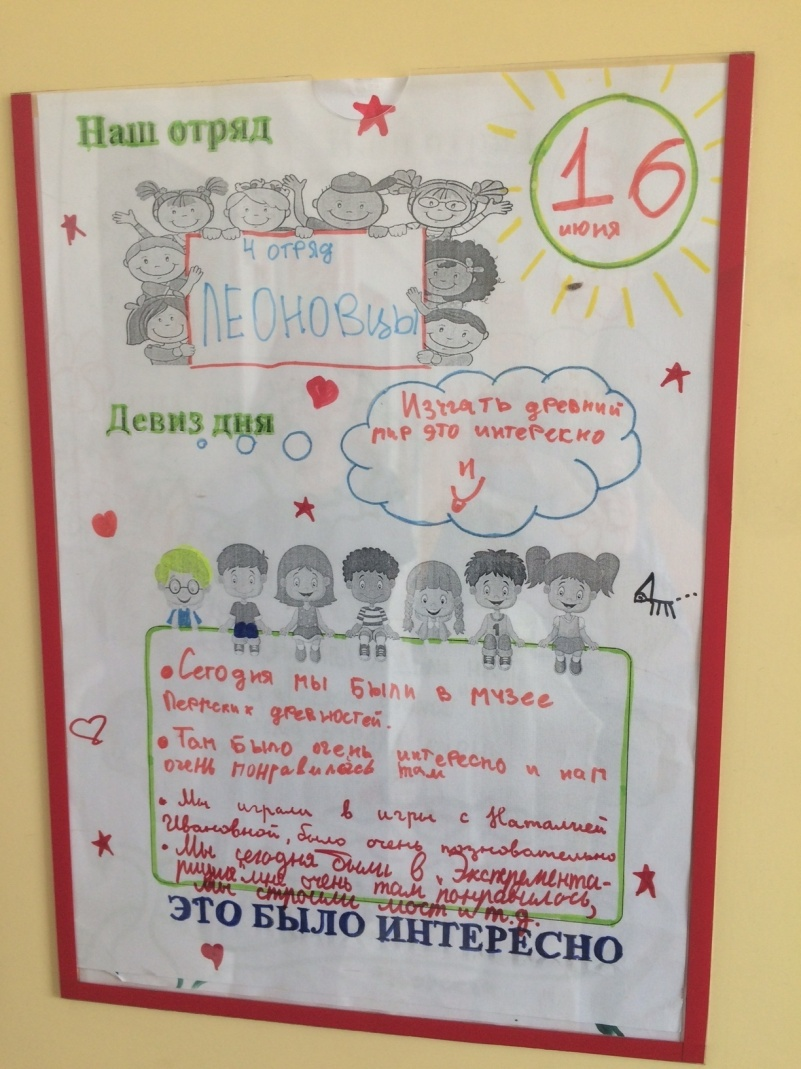 Наш отряд
16
июня
4 отряд
ЛЕОНОВЦЫ
Девиз дня
Изучать древний
мир это интересно
и
• Сегодня мы были в музее
Пермских древностей.
• Там было очень интересно и нам
очень понравилось там
• Мы играли в игры с Наталией
Ивановной, было очень познавательно
• Мы сегодня были в "Эксперемента-
риуме" мне очень там понравилось,
мы строили мост и т.д.
ЭТО БЫЛО ИНТЕРЕСНО